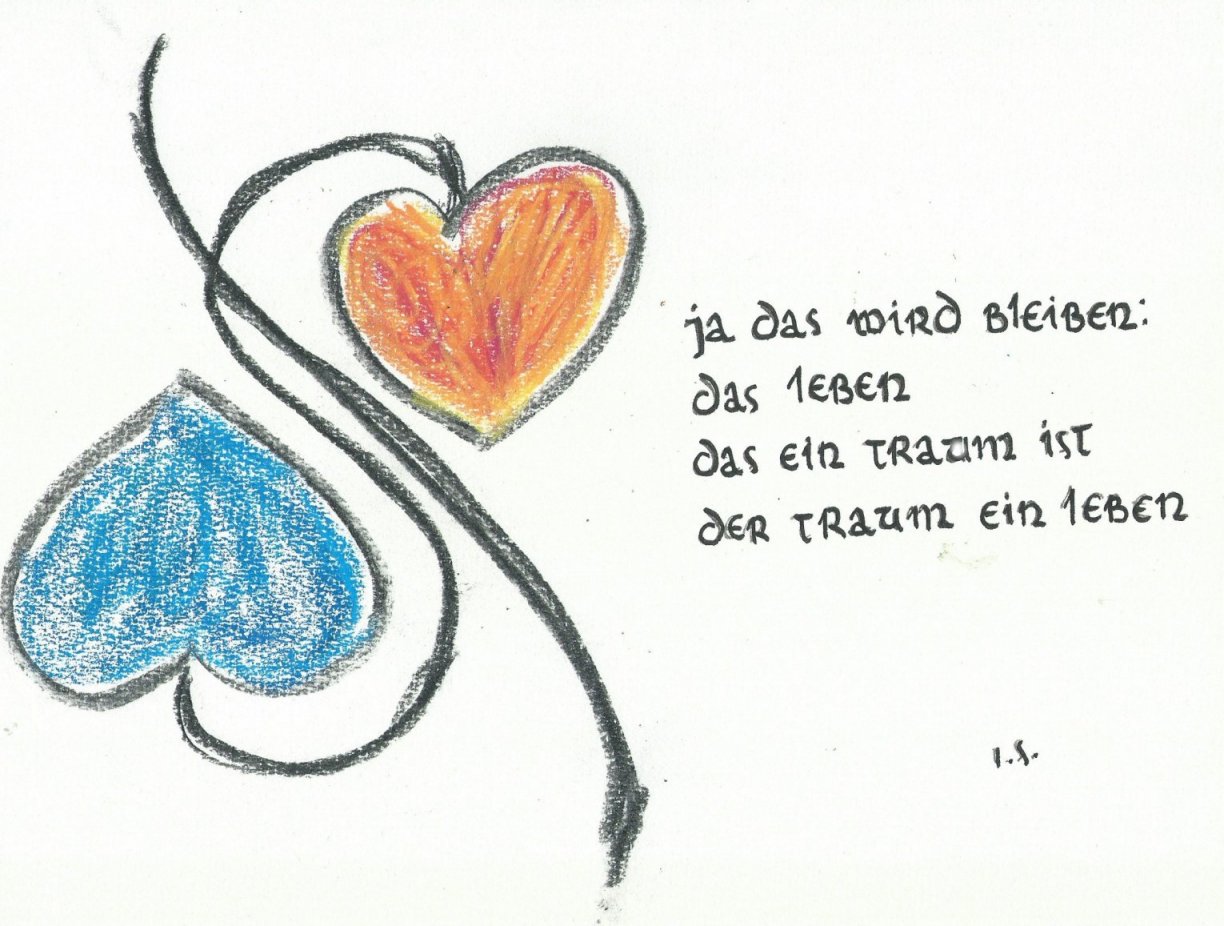 ja das wird bleiben:
das leben
das ein traum ist
der traum ein leben
I.S.